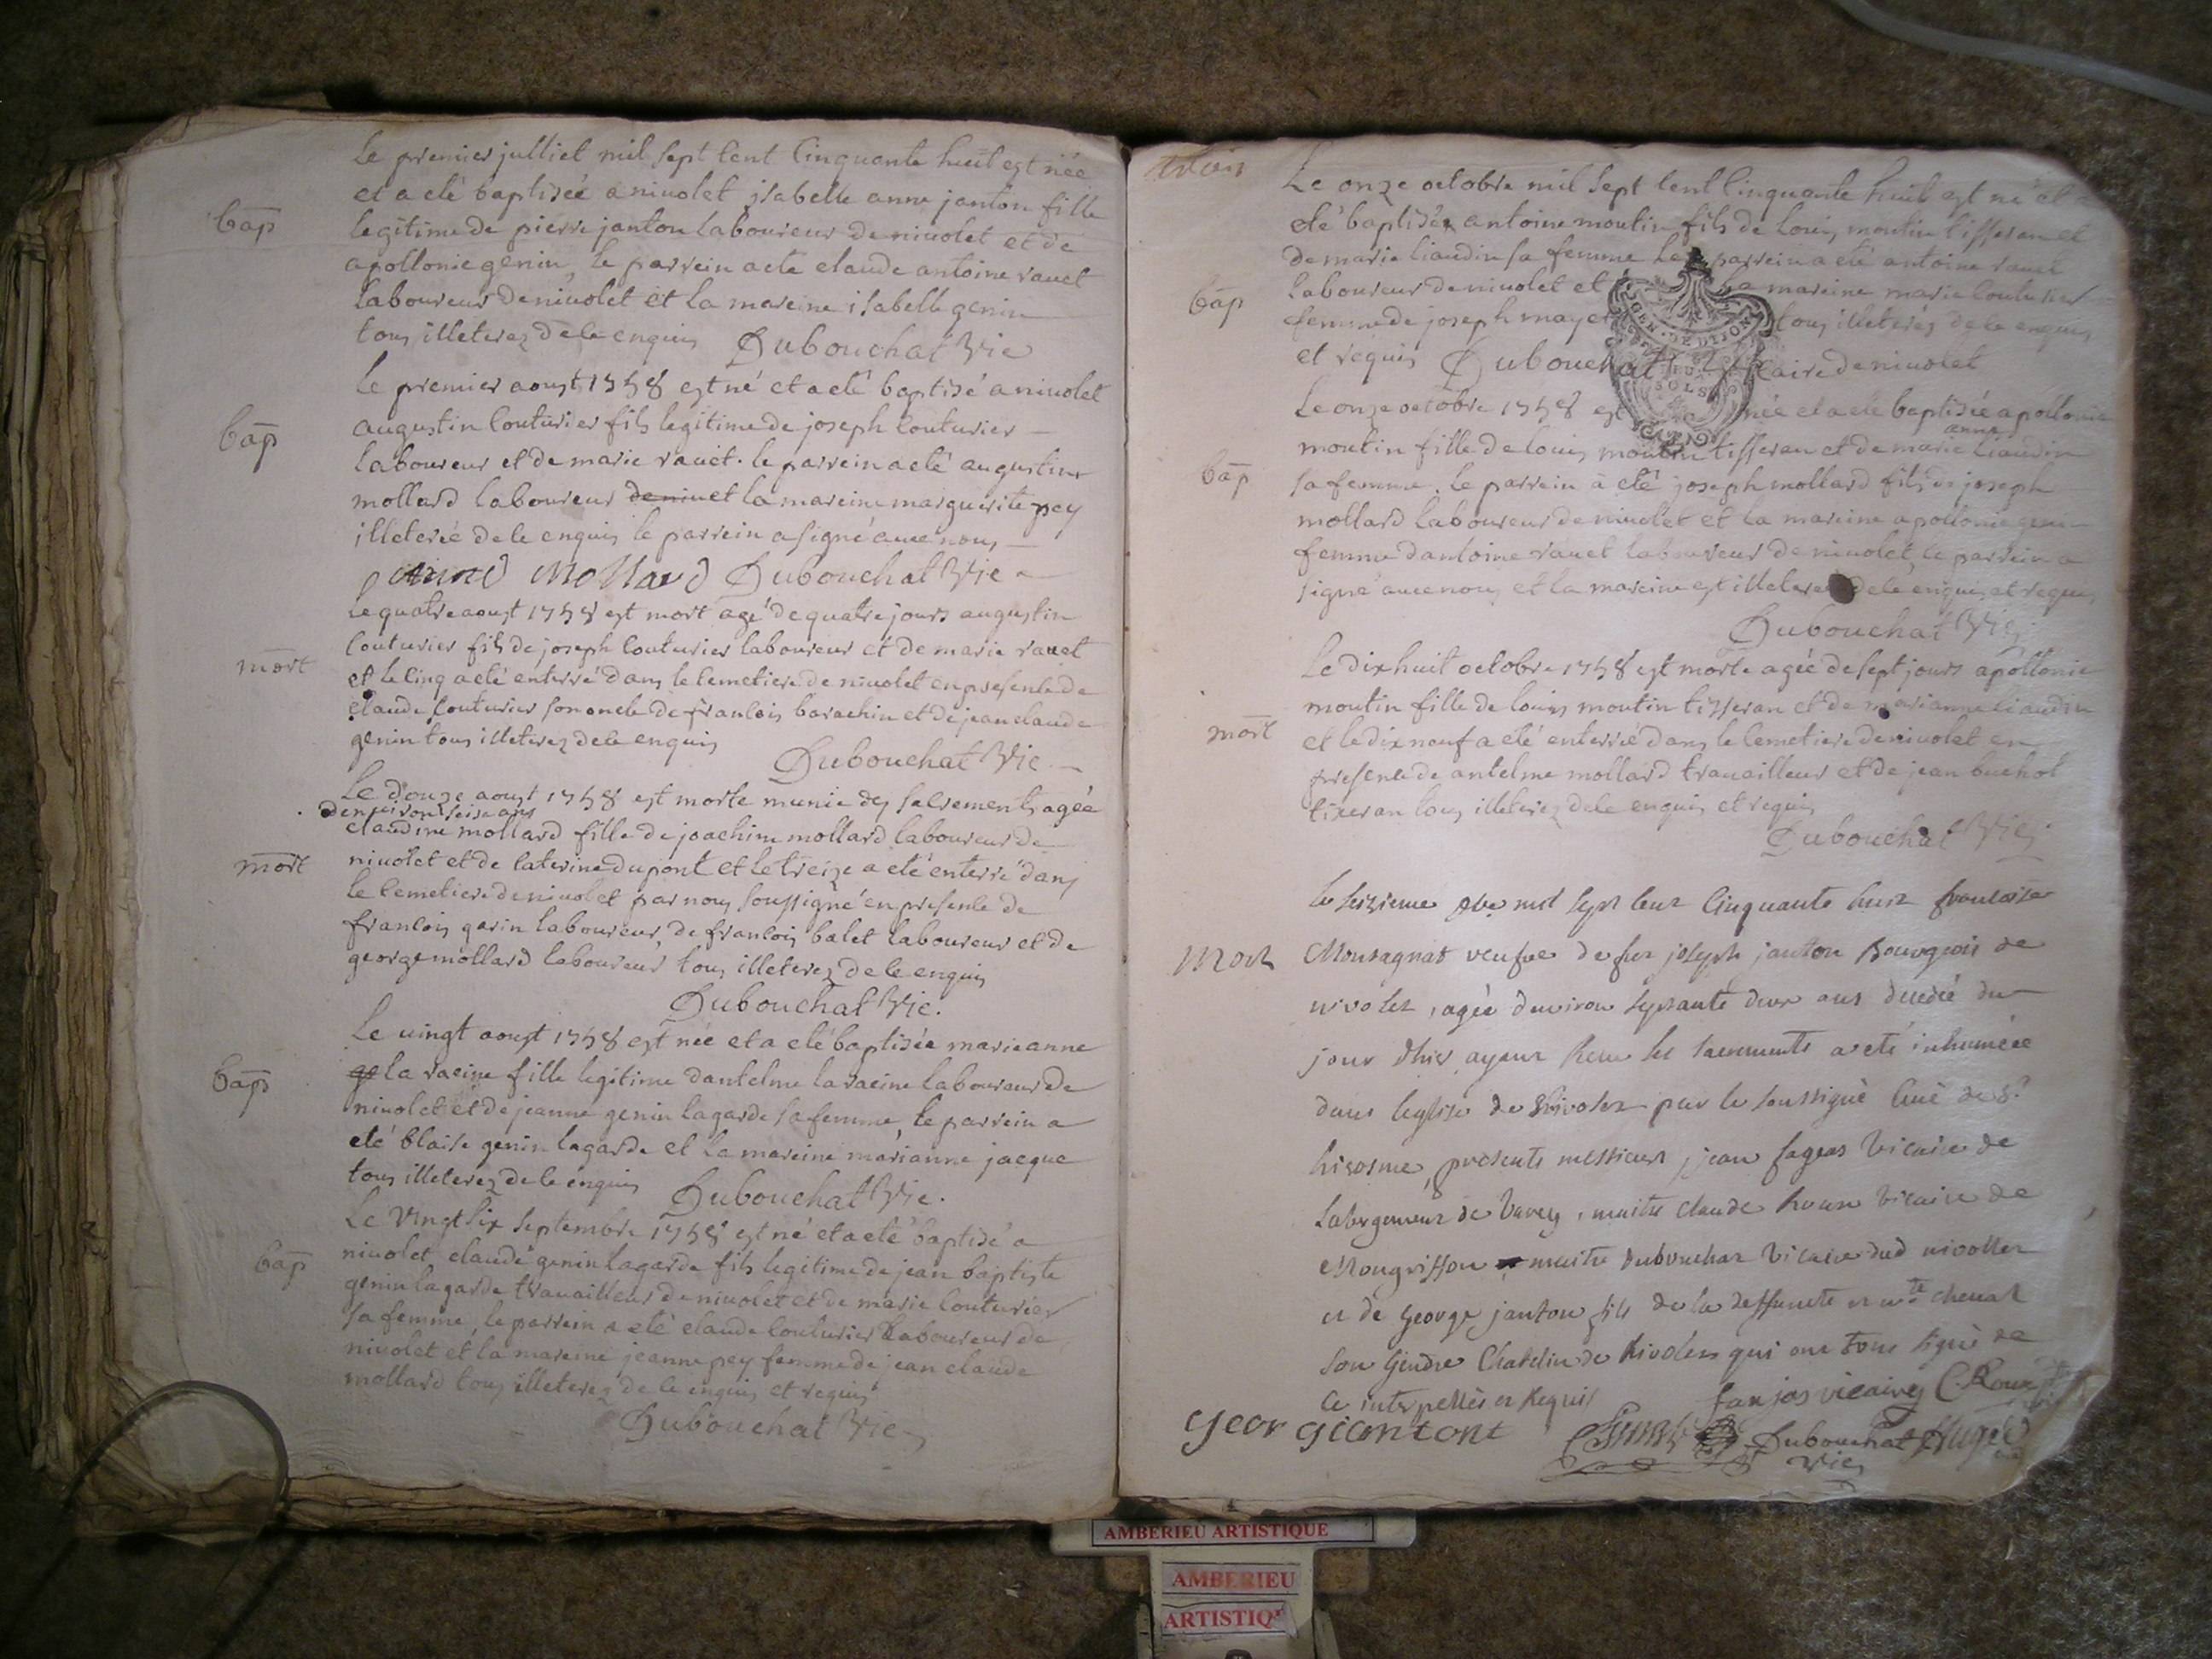 Le premier julliet mil sept cent cinquante huit est née
et a eté baptisée a nivolet isabelle anne janton fille
bap
legitime de pierre janton laboureur de nivolet et de
apollonie genin, le parrein a eté claude antoine ravet
laboureur de nivolet et la mareine isabelle genin
tous illeterez de ce enquis Dubouchat Vic
Le premier aoust 1758 est né et a eté baptisé a nivolet
bap
augustin couturier fils legitime de joseph couturier
laboureur et de marie ravet. le parrein a eté augustin
mollard laboureur de nivet la mareine marguerite pey
illeterée de ce enquis le parrein a signé avec nous
mollard Dubouchat Vic
Le quatre aoust 1758 est mort agé de quatre jours augustin
couturier fils de joseph couturier laboureur et de marie ravet
mort
et le cinq a eté enterré dans le cemetiere de nivolet en presence de
claude couturier son oncle de francois barachin et de jean claude
genin tous illeterez de ce enquis
Dubouchat Vic
Le douze aoust 1758 est morte munie des sacrements agée
d'environ seise ans
claudine mollard fille de joachim mollard laboureur de
mort
nivolet et de caterine dupont et le treize a eté enterré dans
le cemetiere de nivolet par nous soussigné en presence de
francois garin laboureur, de francois balet laboureur et de
george mollard laboureur tous illeterez de ce enquis
Dubouchat Vic.
Le vingt aoust 1758 est née et a eté baptisée marieanne
bap
ge la racine fille legitime dantelme la racine laboureur de
nivolet et de jeanne genin lagarde sa femme, le parrein a
eté blaise genin lagarde et la mareine marianne jacque
tous illeterez de ce enquis Dubouchat Vic.
Le vingt six septembre 1758 est né et a eté baptisé a
bap
nivolet claude genin lagarde fils legitime de jean baptiste
genin lagarde travailleur de nivolet et de marie couturier
sa femme, le parrein a eté claude couturier laboureur de
nivolet et la mareine jeanne pey femme de jean claude
mollard tous illeterez de ce enquis et requis
Dubouchat Vic
Le onze octobre mil sept cent cinquante huit est né et a
eté baptisé antoine moutin fils de louis moutin tisseran et
de marie liaudin sa femme le parrein a eté antoine ravet
bap
laboureur de nivolet et la mareine marie couturier
femme de joseph mayet tous illeterés de ce enquis
et requis Dubouchat vicaire de nivolet
GEN. DE DIJON
SOLS
Le onze octobre 1758 est née et a eté baptisée apollonie
anne
moutin fille de louis moutin tisseran et de marie liaudin
bap
sa femme. le parrein à eté joseph mollard fils de joseph
mollard laboureur de nivolet et la mareine apollonie genin
femme dantoine ravet laboureur de nivolet, le parrein a
signé avec nous et la mareine est illeterée de ce enquis et requis
Dubouchat Vic
Le dix huit octobre 1758 est morte agée de sept jours apollonie
moutin fille de louis moutin tisseran et de marianne liaudin
mort
et le dix neuf a eté enterré dans le cemetiere de nivolet en
presence de antelme mollard travailleur et de jean buchot
tixeran tous illeterez de ce enquis et requis
Dubouchat Vic
Le seizieme mil sept cent cinquante huit francoise
Mort
Montagnat veufve de feu joseph janton Bourgeois de
nivolet, agée d'environ septante deux ans decedée du
jour d'hier ayant receu les sacrements a eté inhumée
dans leglise de Nivolet par le soussigné curé de St
hierosme, presents messieurs jean vicaire de
labergement de Varey, maitre claude Roux vicaire de
Mongriffon maitre Dubouchat vicaire dud nivollet
et de George janton fils de la deffuncte et chenat
son Gendre Chatelin de Nivolet qui ont tous signé de
ce interpellés et Requis
fanjas vicaire C. Roux
George ianton Dubouchat
Vic
AMBERIEU ARTISTIQUE
AMBERIEU
ARTISTIQ